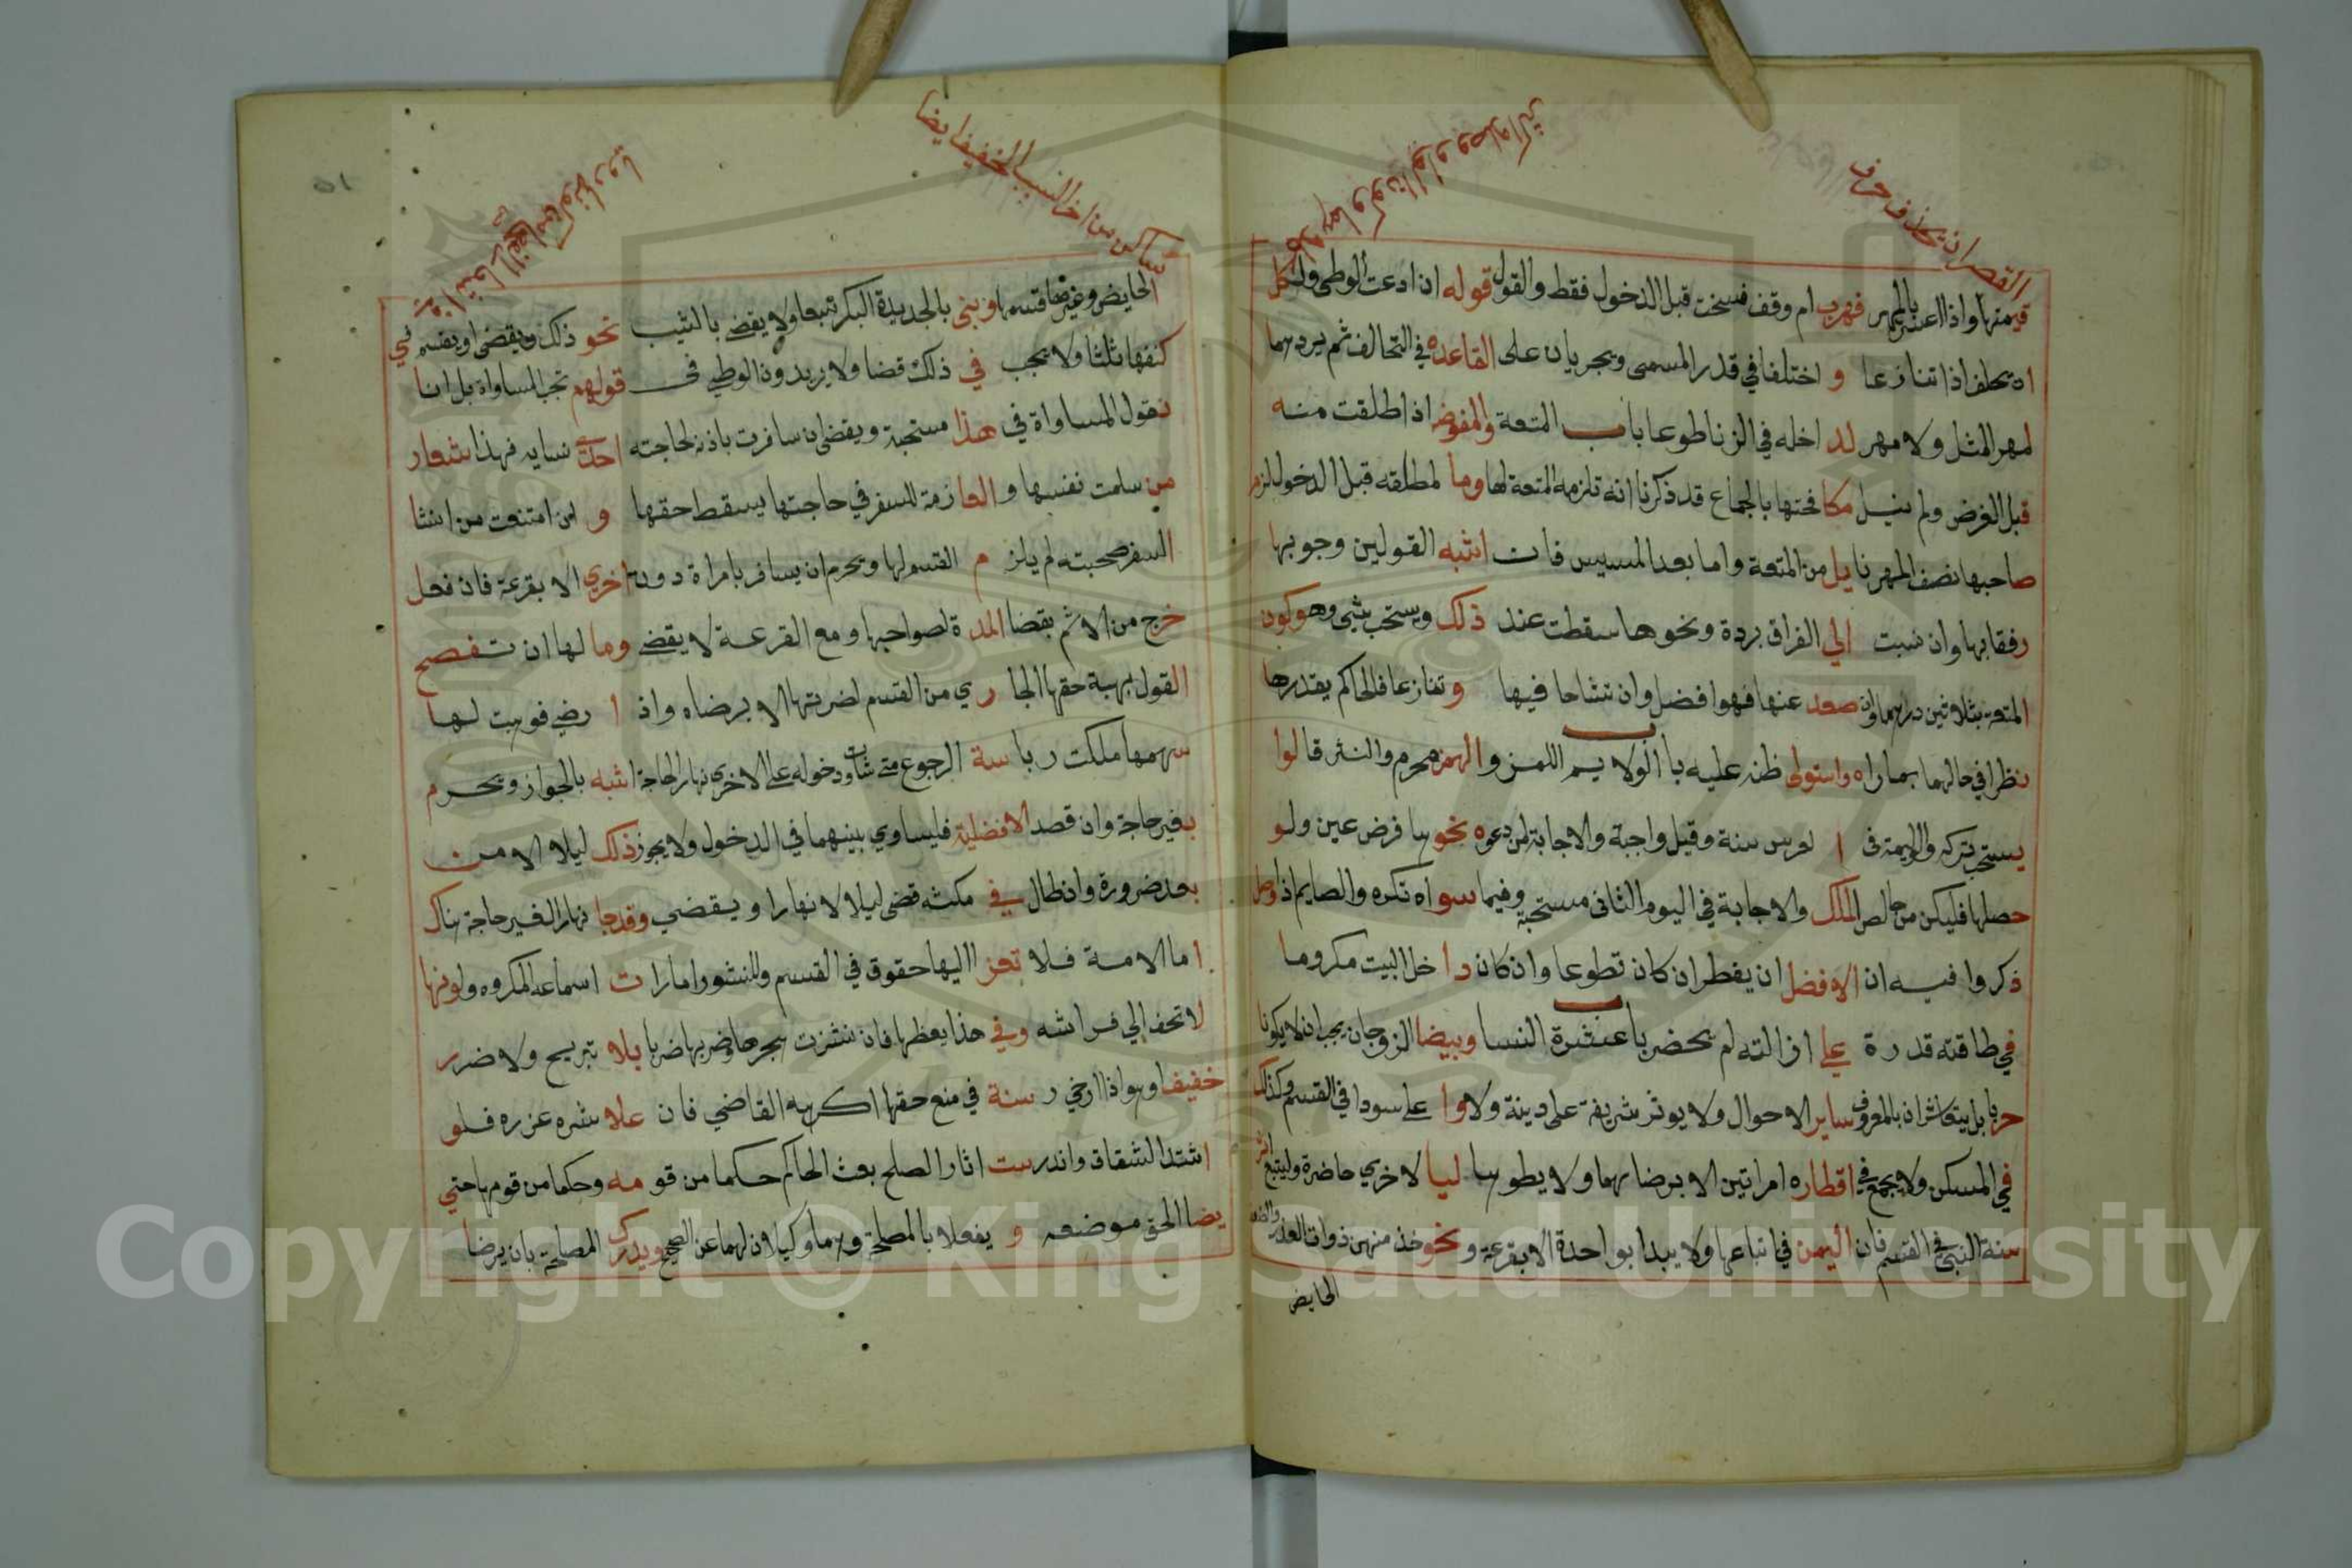 القصر ان يحذف حرف
ساكن من اخر السبب الخفيف ايضا
قيمتها واذا اعسر بالمهر فهرب ام وقف فسخت قبل الدخول فقط والقول قوله ان ادعت الوطى ولكل
ان يحلف اذا تنازعا و اختلفا في قدر المسمى ويجريان على القاعده في التحالف ثم يردهما
لمهر المثل ولا مهر لد اخله في الزنا طوعا باب المتعة والمفوضه اذا طلقت منه
قبل الفرض ولم ينيل مكافحتها بالجماع قد ذكرنا انه تلزمه المتعة لها وما لمطلقه قبل الدخول لزم
صاحبها نصف المهر نايل من المتعة واما بعد المسيس فات اشبه القولين وجوبها
رفقا بها وان نسبت الي الفراق بردة ونحوها سقطت عند ذلك ويستحب شي وهو كون
المتعة بثلاثين درهما وان صعد عنها فهو افضل وان تشاحا فيها و تنازعا فالحاكم يقدرها
نظرا في حالهما بما راه واستولى ظنه عليه باب الولايم اللمز والهمز محرم والنثر قالوا
يستحب تركه والوليمة فى ا لعرس سنة وقيل واجبة والاجابة لمن دعوه نحوها فرض عين ولو
حصلها فليكن من خالص الملك والاجابة في اليوم الثانى مستحبة وفيما سواه تكره والصايم اذا وصل
ذكروا فيه ان الافضل ان يفطر ان كان تطوعا وان كان دا خل البيت مكروها
في طاقته قد رة على ازالته لم يحضر باب عشرة النسا وبيضا الزوجان يجب ان لا يكونا
حربا بل يتعاشران بالمعروف ساير الاحوال ولا يوثر شريفة على دينة ولا وا على سودا في القسم وكذلك
في المسكن ولا يجمع في اقطاره امراتين الا برضاهما ولا يطوها ليا لاخري حاضرة وليتبع اثر
سنة النبي في القسم فان اليمن في اتباعها ولا يبدا بواحدة الا بقرعة ونحو خذ منهن ذوات العذر
الحايض
الحايض وغيرها قسمها وبنى بالجديدة البكر تبعا ولا يقض بالثيب نحو ذلك ويقضى او يقسم ني
كنفها ثلثا ولا يجب في ذلك قضا ولا يريدون الوطي في قولهم تجب المساواة بل انا
نقول المساواة في هذا مستحبة ويقضى ان سافرت باذنه لحاجته احدى نسايه فهذا شعار
من سلمت نفسها و العازمة للسفر في حاجتها يسقط حقها و لمن امتنعت من انشا
السفر صحبته لم يلز م القسم لها ويحرم ان يسافر بامراة دون اخري الا بقرعة فان فعل
خرج من الاثم بقضا المد ة لصواحبها ومع القرعة لا يقضي وما لها ان تفصح
القول بهبة حقها الجا ري من القسم لضرتها الا برضاه واذ ا رضي فوهبت لها
سهمها ملكت ر يا سة الرجوع متى شات ودخوله على الاخري نهارا لحاجة اشبه بالجواز ويحرم
بغير حاجة وان قصد الافضلية فليساوي بينهما في الدخول ولا يجوز ذلك ليلا الا من
بعد ضرورة وان طال في مكثه قضى ليلا لا نهارا ويقضي وقد جا نهارا لغير حاجة هناك
اما الامة فلا تجز االيها حقوق في القسم وللنشوز امارا ت اسماعه المكروه ولونها
لا تحف الي فراشه وفي هذا يعظها فان نشزت هجرها وضربها ضربا بلا تبريح ولا ضرر
خفيف او هو اذا ارخي ر سنة في منع حقها اكرهه القاضي فان علا شره عزره فلو
اشتد الشقاق واندرست اثار الصلح بعث الحاكم حكما من قو مه وحكما من قومها حتي
يضا الحق موضعه و يفعلا بالمصلحة وهما وكيلان لهما عن الصحيح ويدرك المصلحة بان يرضا